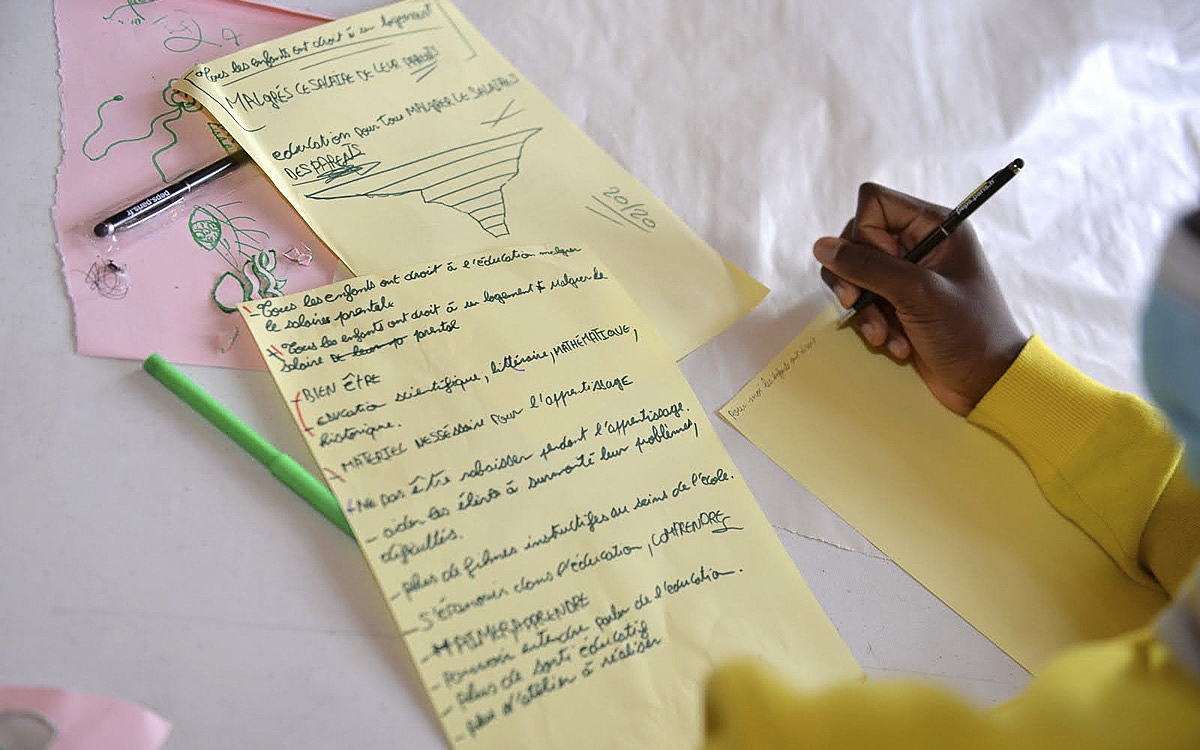 Tous les enfants ont droit à un logement
MALGRÉS CE SALAIRE DE LEUR PARENTS
education pour tous MALGRER LE SALAIRES
DES PARENTS
20/20
peps.paris.fr
- Tous les enfants ont droit à l'éducation malgrer
le salaires parental
- Tous les enfants ont droit à un logement malgrer le
salaire parental
- BIEN ÊTRE
- éducation scientifique, littéraire, MATHÉMATIQUE,
historique.
- MATERIEL NESSÉSSAIRE POUR L'APPRENTISSAGE
- Ne pas être rabaisser pendant l'apprentissage.
- aider les élèves à surmonté leur problèmes,
difficultés.
- plus de filmes instructifes au seins de l'école.
- S'épanouir dans l'éducation, COMPRENDRE
- AIMER APPRENDRE
- Pouvoir entendre parler de l'éducation.
- plus de sorti éducatif
- plus d'atelier à réaliser
Pour moi les enfants ont droit
peps.paris.fr